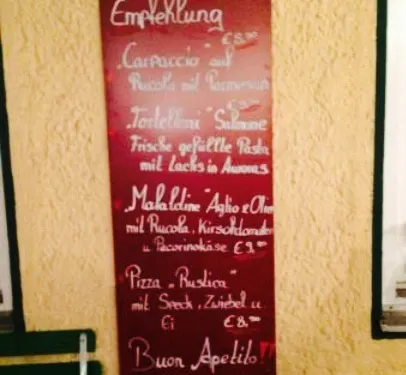 Empfehlung
€8.90
„Carpaccio" auf
Rucola mit Parmesan
„Tortelloni" Salmone
Frische gefüllte Pasta
mit Lachs in
„Mafaldine" Aglio e Olio
mit Rucola, Kirschtomaten
u Pecorinokäse €9.
Pizza „Rustica"
mit Speck, Zwiebel u
Ei €8.
Buon Apetito!!